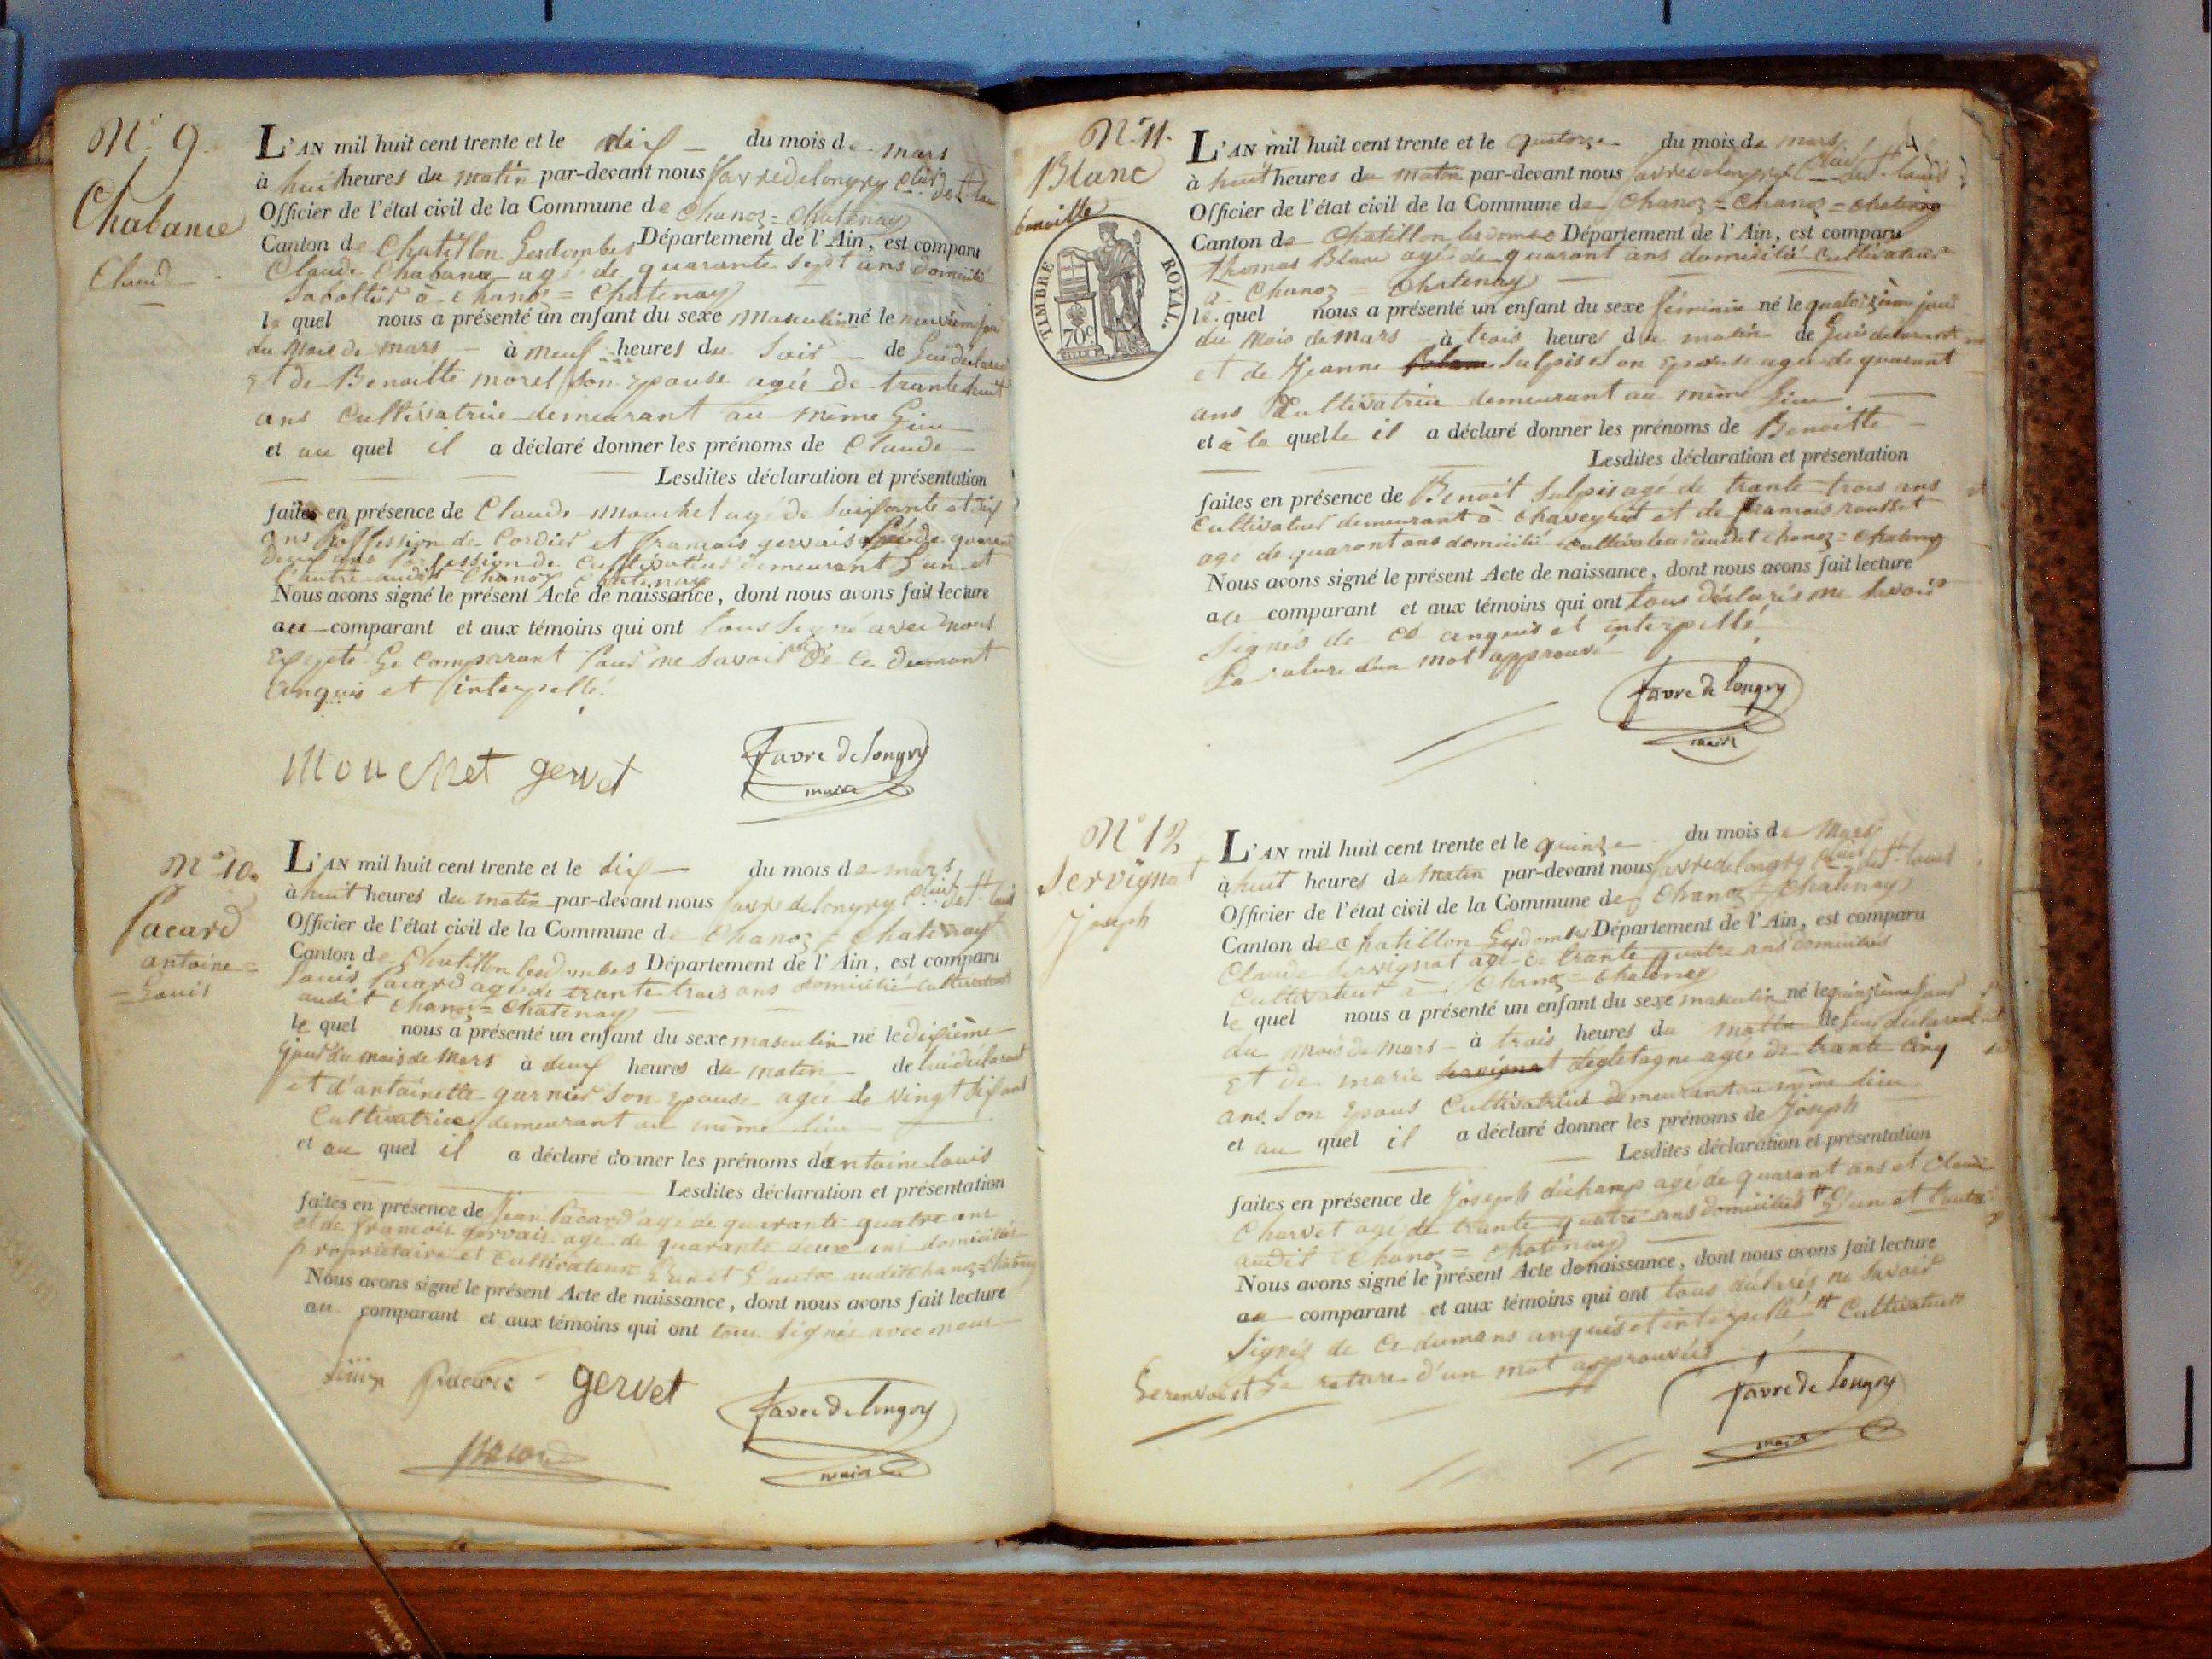 N° 9.
Chabance
Claude
L'AN mil huit cent trente et le dix du mois de mars
à huit heures du matin par-devant nous favre delongry
Officier de l'état civil de la Commune de Chanoz = Chatenay
Canton de Chatillon Lesdombes Département de l'Ain, est comparu
Claude Chabance agé de quarante sept ans domicilié
Sabottier à Chanoz = Chatenay
le quel nous a présenté un enfant du sexe masculin né le neuvième jour
du mois de mars à neuf heures du soir de Lui déclarant
Et de Benoitte morel son Epouse agée de trante huit
ans Cultivatrice demeurant au même Lieu
et au quel il a déclaré donner les prénoms de Claude
Lesdites déclaration et présentation
faites en présence de Claude mouchet agé de soixante et dix
ans proffession de Cordier et francois gervais agé de quarante
deux ans proffession de Cultivateur demeurant L'un et
l'autre audit Chanoz Chatenay
Nous avons signé le présent Acte de naissance, dont nous avons fait lecture
au comparant et aux témoins qui ont tous Signé avec nous
Excepté Le Comparant pour ne Savoir de ce
enquis et interpellé.
Mouchet gervet Favre de longry
maire
N° 10.
Pacard
antoine =
= Louis
L'AN mil huit cent trente et le dix du mois de mars
à huit heures du matin par-devant nous favre delongry
Officier de l'état civil de la Commune de Chanoz = Chatenay
Canton de Chatillon lesdombes Département de l'Ain, est comparu
Louis Pacard agé de trante trois ans domicilié cultivateur
audit Chanoz = Chatenay
le quel nous a présenté un enfant du sexe masculin né le dixième
jour du mois de mars à deux heures du matin de lui déclarant
et d'antoinette garnier son Epouse agée de vingt dix ans
Cultivatrice demeurant au même lieu
et au quel il a déclaré donner les prénoms de antoine louis
Lesdites déclaration et présentation
faites en présence de Jean Pacard agé de quarante quatre ans
et de francois gervais agé de quarante deux ans domiciliés
propriétaire et Cultivateur L'un et L'autre audit chanoz = chatenay
Nous avons signé le présent Acte de naissance, dont nous avons fait lecture
au comparant et aux témoins qui ont tous signés avec nous
gervet Favre de longry
maire
N° 11.
Blanc
benoitte
TIMBRE ROYAL.
70c
L'AN mil huit cent trente et le quatorze du mois de mars
à huit heures du matin par-devant nous favre delongry
Officier de l'état civil de la Commune de Chanoz = Chanoz = chatenay
Canton de Chatillon lesdombes Département de l'Ain, est comparu
thomas Blanc agé de quarant ans domicilié Cultivateur
à Chanoz = Chatenay
le quel nous a présenté un enfant du sexe féminin né le quatorzième jour
du mois de mars à trois heures du matin de Lui déclarant
et de Jeanne Sulpis son Epouse agée de quarant
ans Cultivatrice demeurant au même Lieu
et à la quelle il a déclaré donner les prénoms de Benoitte
Lesdites déclaration et présentation
faites en présence de Benoit Sulpis agé de trante trois ans
Cultivateur demeurant à chaveyriat et de francois rousset
agé de quarant ans domicilié cultivateur audit chanoz = chatenay
Nous avons signé le présent Acte de naissance, dont nous avons fait lecture
au comparant et aux témoins qui ont tous déclarés ne savoir
signés de ce enquis et interpellé
La rature d'un mot approuvé
Favre de longry
maire
N° 12
Servignat
Joseph
L'AN mil huit cent trente et le quinze du mois de mars
à huit heures du matin par-devant nous favre delongry
Officier de l'état civil de la Commune de Chanoz = Chatenay
Canton de chatillon Lesdombes Département de l'Ain, est comparu
Claude Servignat agé de trante quatre ans domicilié
Cultivateur à Chanoz = chatenay
le quel nous a présenté un enfant du sexe masculin né le quinzième jour
du mois de mars à trois heures du matin de lui déclarant
Et de marie servignat degletagne agée de trante cinq
ans Son Epouse Cultivatrice demeurant au même lieu
et au quel il a déclaré donner les prénoms de Joseph
Lesdites déclaration et présentation
faites en présence de Joseph dechamp agé de quarant ans et Claude
Charvet agé de trante quatre ans domiciliés L'un et l'autre
audit Chanoz = Chatenay
Nous avons signé le présent Acte de naissance, dont nous avons fait lecture
au comparant et aux témoins qui ont tous déclarés ne savoir
Signés de ce enquis et interpellé Cultivateurs
Le renvoi et La rature d'un mot approuvés
Favre de longry
maire